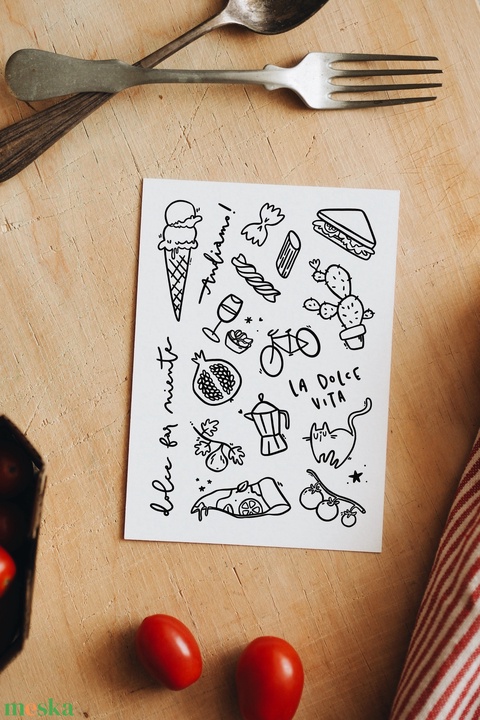 Andiamo!
LA DOLCE
VITA
dolce far niente
meska